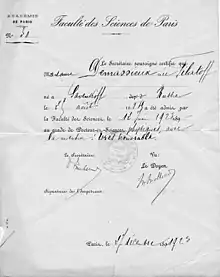 ACADÉMIE
DE PARIS
Faculté des Sciences de Paris
N°
Le Secrétaire soussigné certifie que
Madame Demassieux née Filatoff
né à dept Russie
le 27 août a été admis par
la Faculté des Sciences, le 12 juin 1923
au grade de Docteur ès Sciences physiques, avec
la mention : très honorable
Le Secrétaire, Vu :
Le Doyen,
Signature de l'Impétrant,
Paris, le décembre 1923